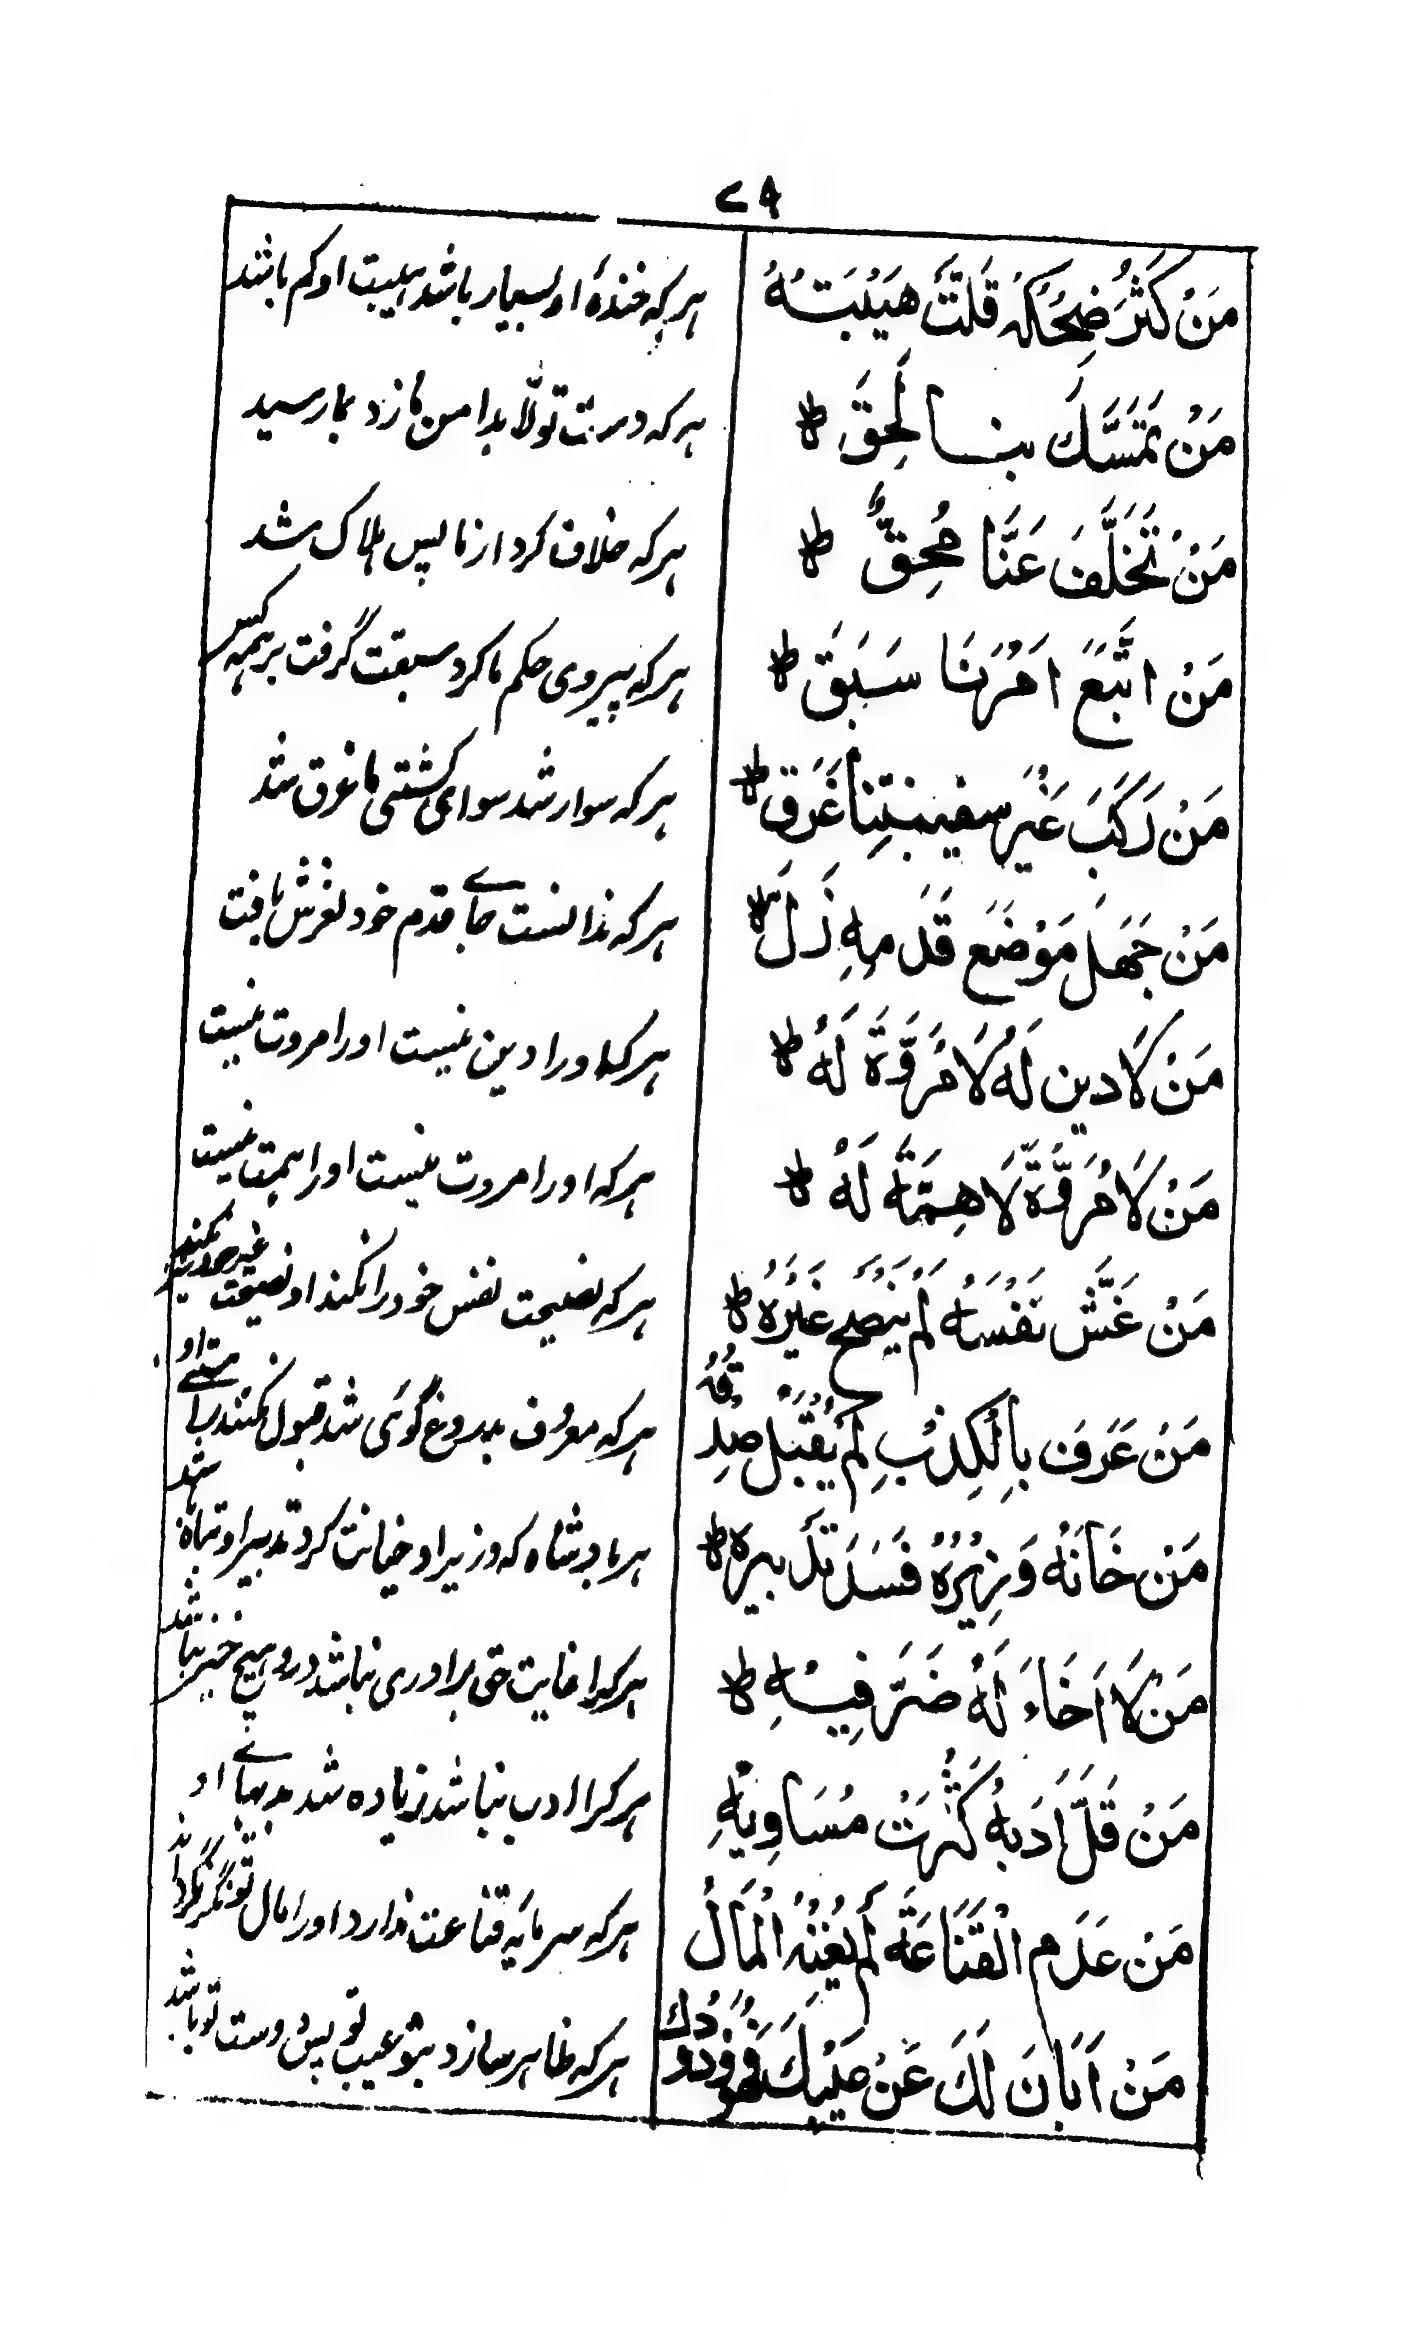 ۷۹
مَنْ كَثُرَ ضِحْكُهُ قَلَّتْ هَيْبَتُهُ
هر که خندهٔ او بسیار باشد هیبت او کم باشد
مَنْ تَمَسَّكَ بنا لَحِقَ ط
هر که دست تولّا بدامن ما زد بما رسید
مَنْ تَخَلَّفَ عَنَّا مُحِقَّ ط
هر که خلاف کرد از ما پس هلاک شد
مَنْ اتَّبَعَ اَمْرَنَا سَبَقَ ط
هر که پیروی حکم ما کرد سبقت گرفت بر همه کس
مَنْ رَكَبَ غَيْرَ سفينتِنا غَرَق ط
هر که سوار شد سوای کشتی ما غرق شد
مَنْ جَهَلَ مَوْضَع قَدَمِهِ زَلَّ ط
هر که ندانست جاے قدم خود لغزش یافت
مَنْ لَا دين لَهُ لَا مُرَوَّةَ لَهُ ط
هر که اورا دین نیست اورا مروت نیست
مَنْ لَا مُرَوَّةَ لَا هِمَّةَ لَهُ ط
هر که اورا مروت نیست اورا همت نیست
مَنْ غَشَّ نَفْسَهُ لَمْ يَنْصَحْ غَيْرَهُ ط
هر که نصیحت نفس خود را نکند او نصیحت غیر خود نکند
مَنْ عَرَفَ بِالْكِذْبِ لَمْ يُقْبَل صِدْقُهُ
هر که معروف بدروغ گوئی شد قبول نکنند راستے او
مَنْ خَانَهُ وَزِيْرُهُ فَسَدَ تَدْبيره ط
هر بادشاه که وزیر او خیانت کرد تدبیر او تباه شد
مَنْ لَا اَخَاءَ لَهُ ضَرَّ فِيهِ ط
هر که حق برادری نباشد درو هیچ خیر نباشد
مَنْ قَلَّ اَدَبُهُ كَثُرَتْ مُسَاوِيْهِ
هر کرا ادب نباشد زیاده شد بدیهاے او
مَنْ عَدَم الْقَنَاعَةَ لَمْ يُغْنِهُ الْمَالُ
هر که سرمایه قناعت ندارد اورا مال تونگر نگرداند
مَنْ اَبَانَ لَكَ عَنْ عَيْبِكَ فَهُوَ وُدُوْدُكَ
هر که ظاهر سازد بتو عیب تو پس دوست تو باشد